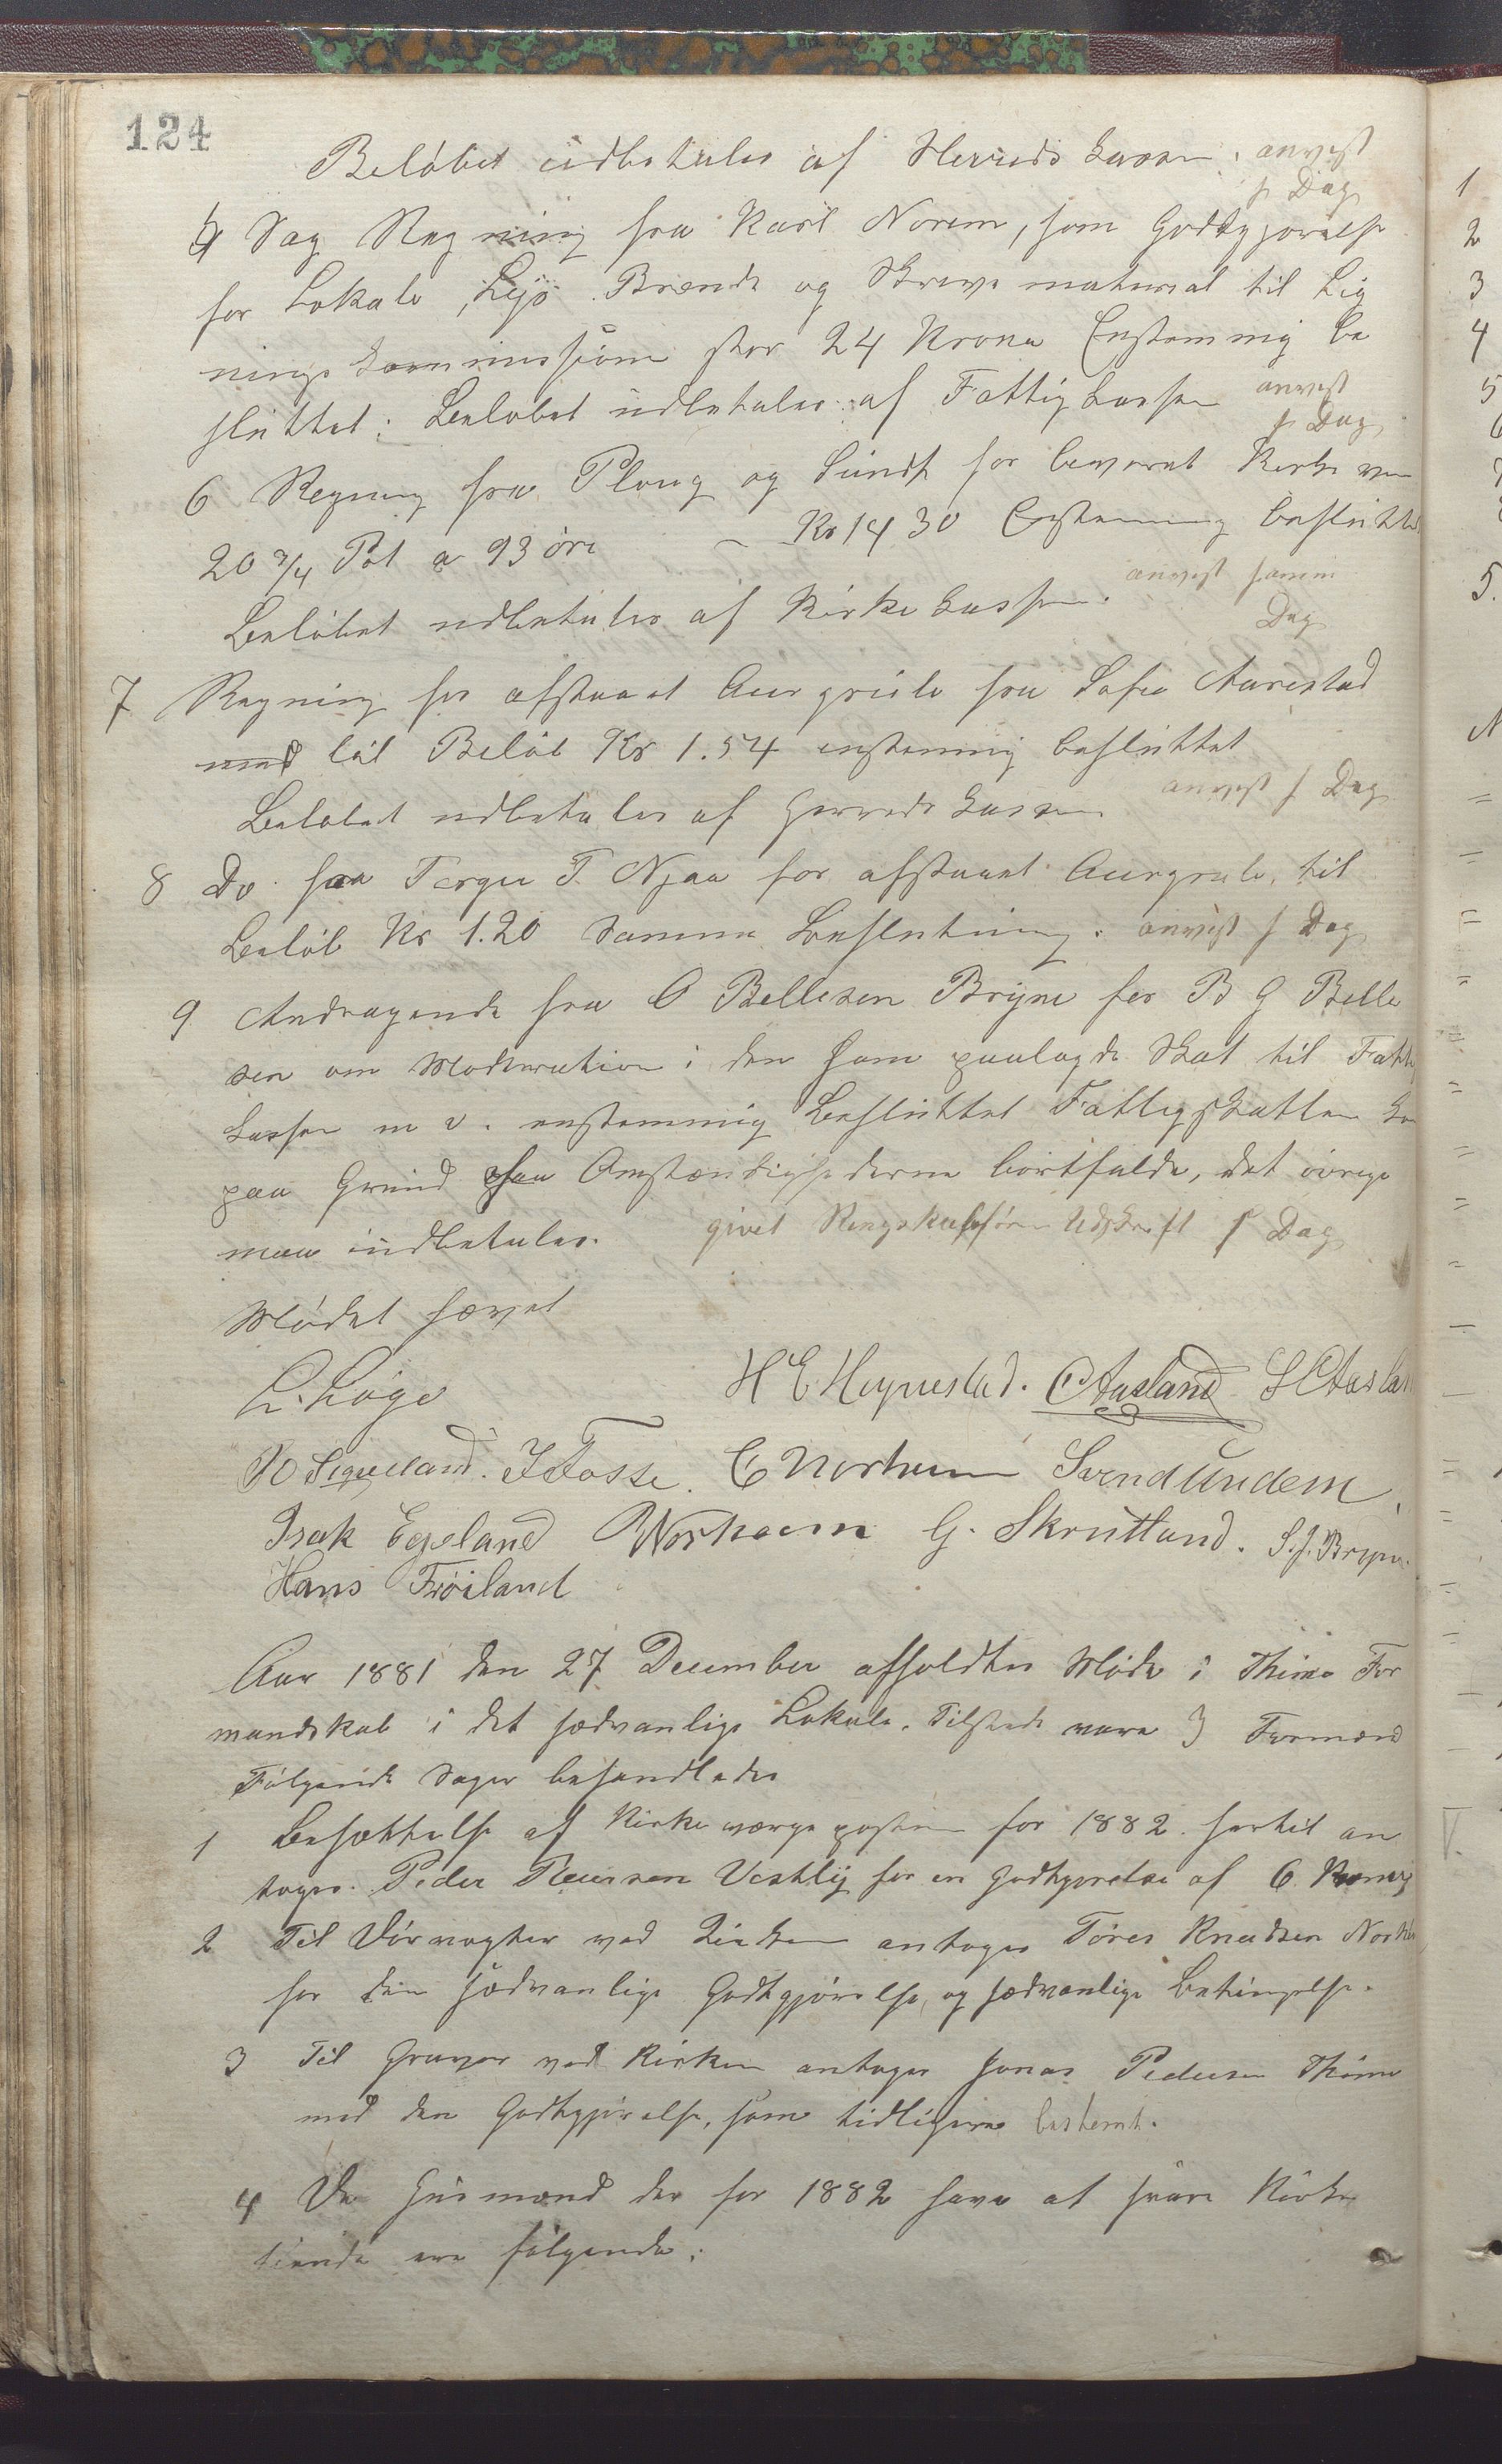 124
Beløbet udbetales af Herreds Kassen. anvist
s Dag
5 Sag Regning fra Karl Norem, som Godtgjørelse
for Lokale, Lys Brænde og Skrive material til Lig
nings Kommissionen stor 24 Krone Enstemmig be
sluttet: Beløbet udbetales af Fattigkassen anvist
s Dag
6 Regning fra Ploug og Sundt for leveret Kirke vin
20 3/4 Pot a 93 øre ~ Kr 14 30 Enstemmig besluttet
Beløbet udbetales af Kirke Kassen. anvist samme
Dag
7 Regning for afstaaet Aurgrule fra Sofie Aarestad
med lål Beløb Kr 1.54 enstemmig besluttet
Beløbet udbetales af Herreds Kassen anvist s Dag
8 Do fra Torger T. Njaa for afstaaet Aurgrule, til
Beløb Kr 1.20 Samme Beslutning. anvist s Dag
9 Andragende fra O Bellesen Bryne for B G Belle
sen om Moderation i den ham paalagde Skat til Fattig
kassen m v. enstemmig Besluttet Fattigskatten
paa Grund af Omstændighederne bortfalde, det øvrige
maa indbetales. givet Rengskabsføren Udskrift s Dag
Mødet hævet
L. Løge H E Hognestad. O Aasland S O Aasland
P O Sigveland. J Fosse. E Norheim Svend Undem
Isak Egeland P Norheim G. Skrutland. S. J. Bryne.
Hans Frøiland
Aar 1881 den 27 December afholdtes Møde i Thime For
mandskab i det sædvanlige Lokale. Tilstede vare 3 Formænd
Følgende Sager behandledes
1 Besættelse af Kirkeværge posten for 1882. hertil an
toges. Peder Reiersen Vestly for en godtgjørelse af 6 Kroner
2 Til Dørvogter ved Kirken antoges Tøres Knudsen Norheim
for den sædvanlige Godtgjørelse, og sædvanlige betingelse.
3 Til Graver ved Kirken antoges Jonas Pedersen Thime
med den Godtgjørelse, som tidligere bestemt.
4 De Husmænd der for 1882 have at svare Kirke
tiende ere følgende: